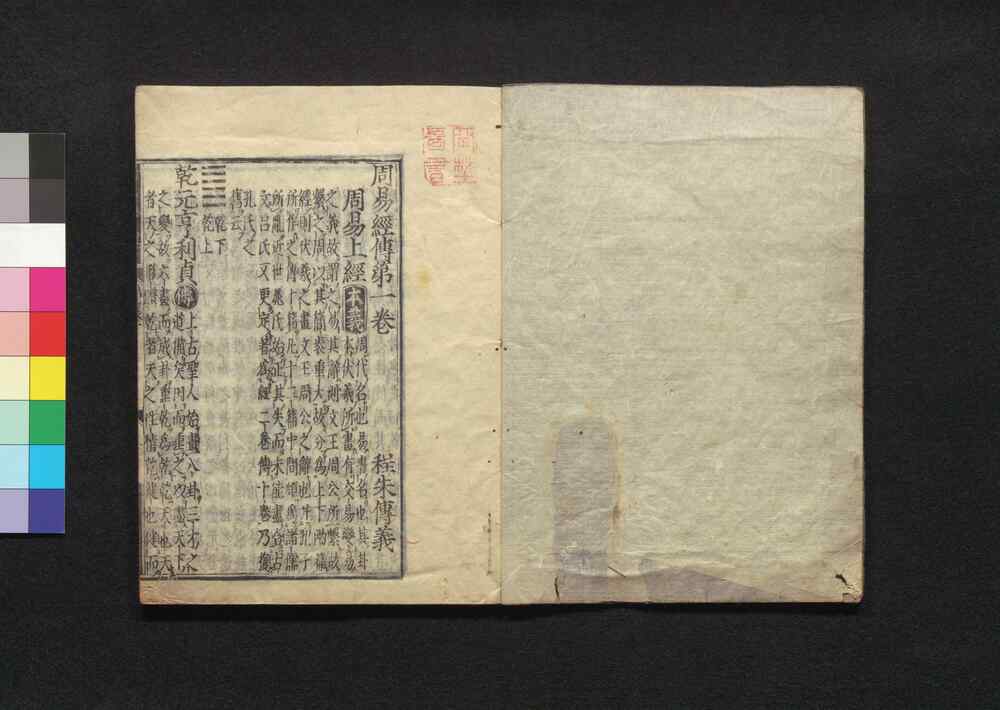 周易經傳第一卷　程朱傳義
周易上經　本義　周代名也易書名也其卦
本伏羲所畫有交易變易
之義故謂之易其辭則文王周公所繫故
繫之周以其簡袠重大故分爲上下兩篇
經則伏羲之畫文王周公之辭也并孔子
所作之傳十篇凡十二篇中間頗爲諸儒
所亂近世晁氏始正其失而未能盡合古
文呂氏又更定著爲經二卷傳十卷乃復
孔氏之
舊云
乾下
乾上
乾元亨利貞　傳　上古聖人始畫八卦三才之
道備矣因而重之以盡天下
之變故六畫而成卦重乾爲乾乾天也天
者天之形體乾者天之性情乾健也健而